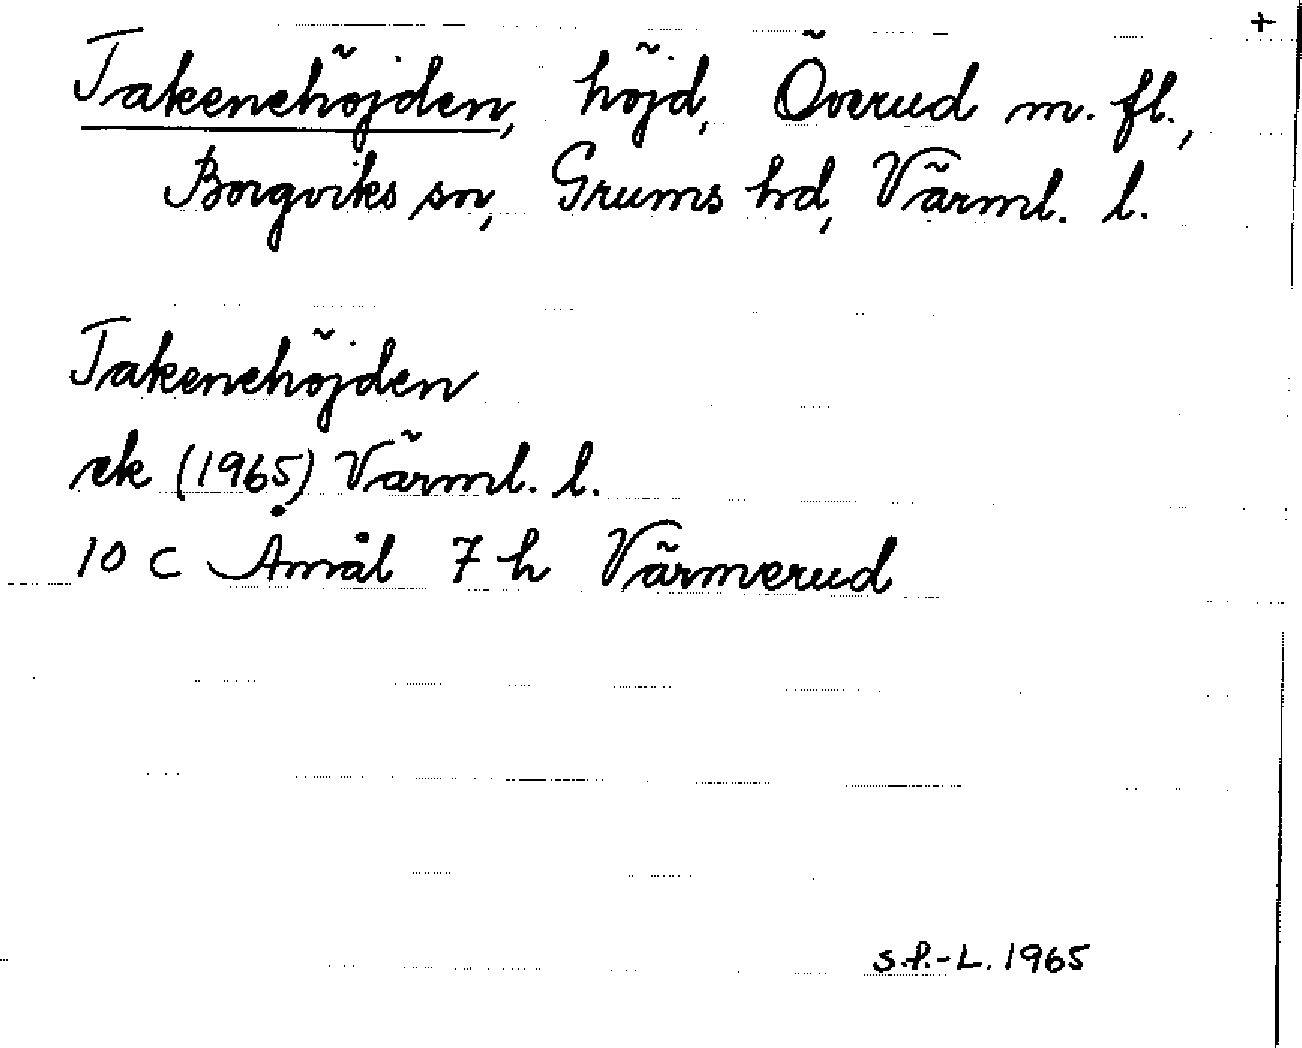 +
Takenehöjden, höjd, Överud m. fl.,
Borgviks sn, Grums hd, Värml. l.
Takenehöjden
ek (1965) Värml. l.
10 C Åmål 7 h Värmerud
S.f.-L. 1965